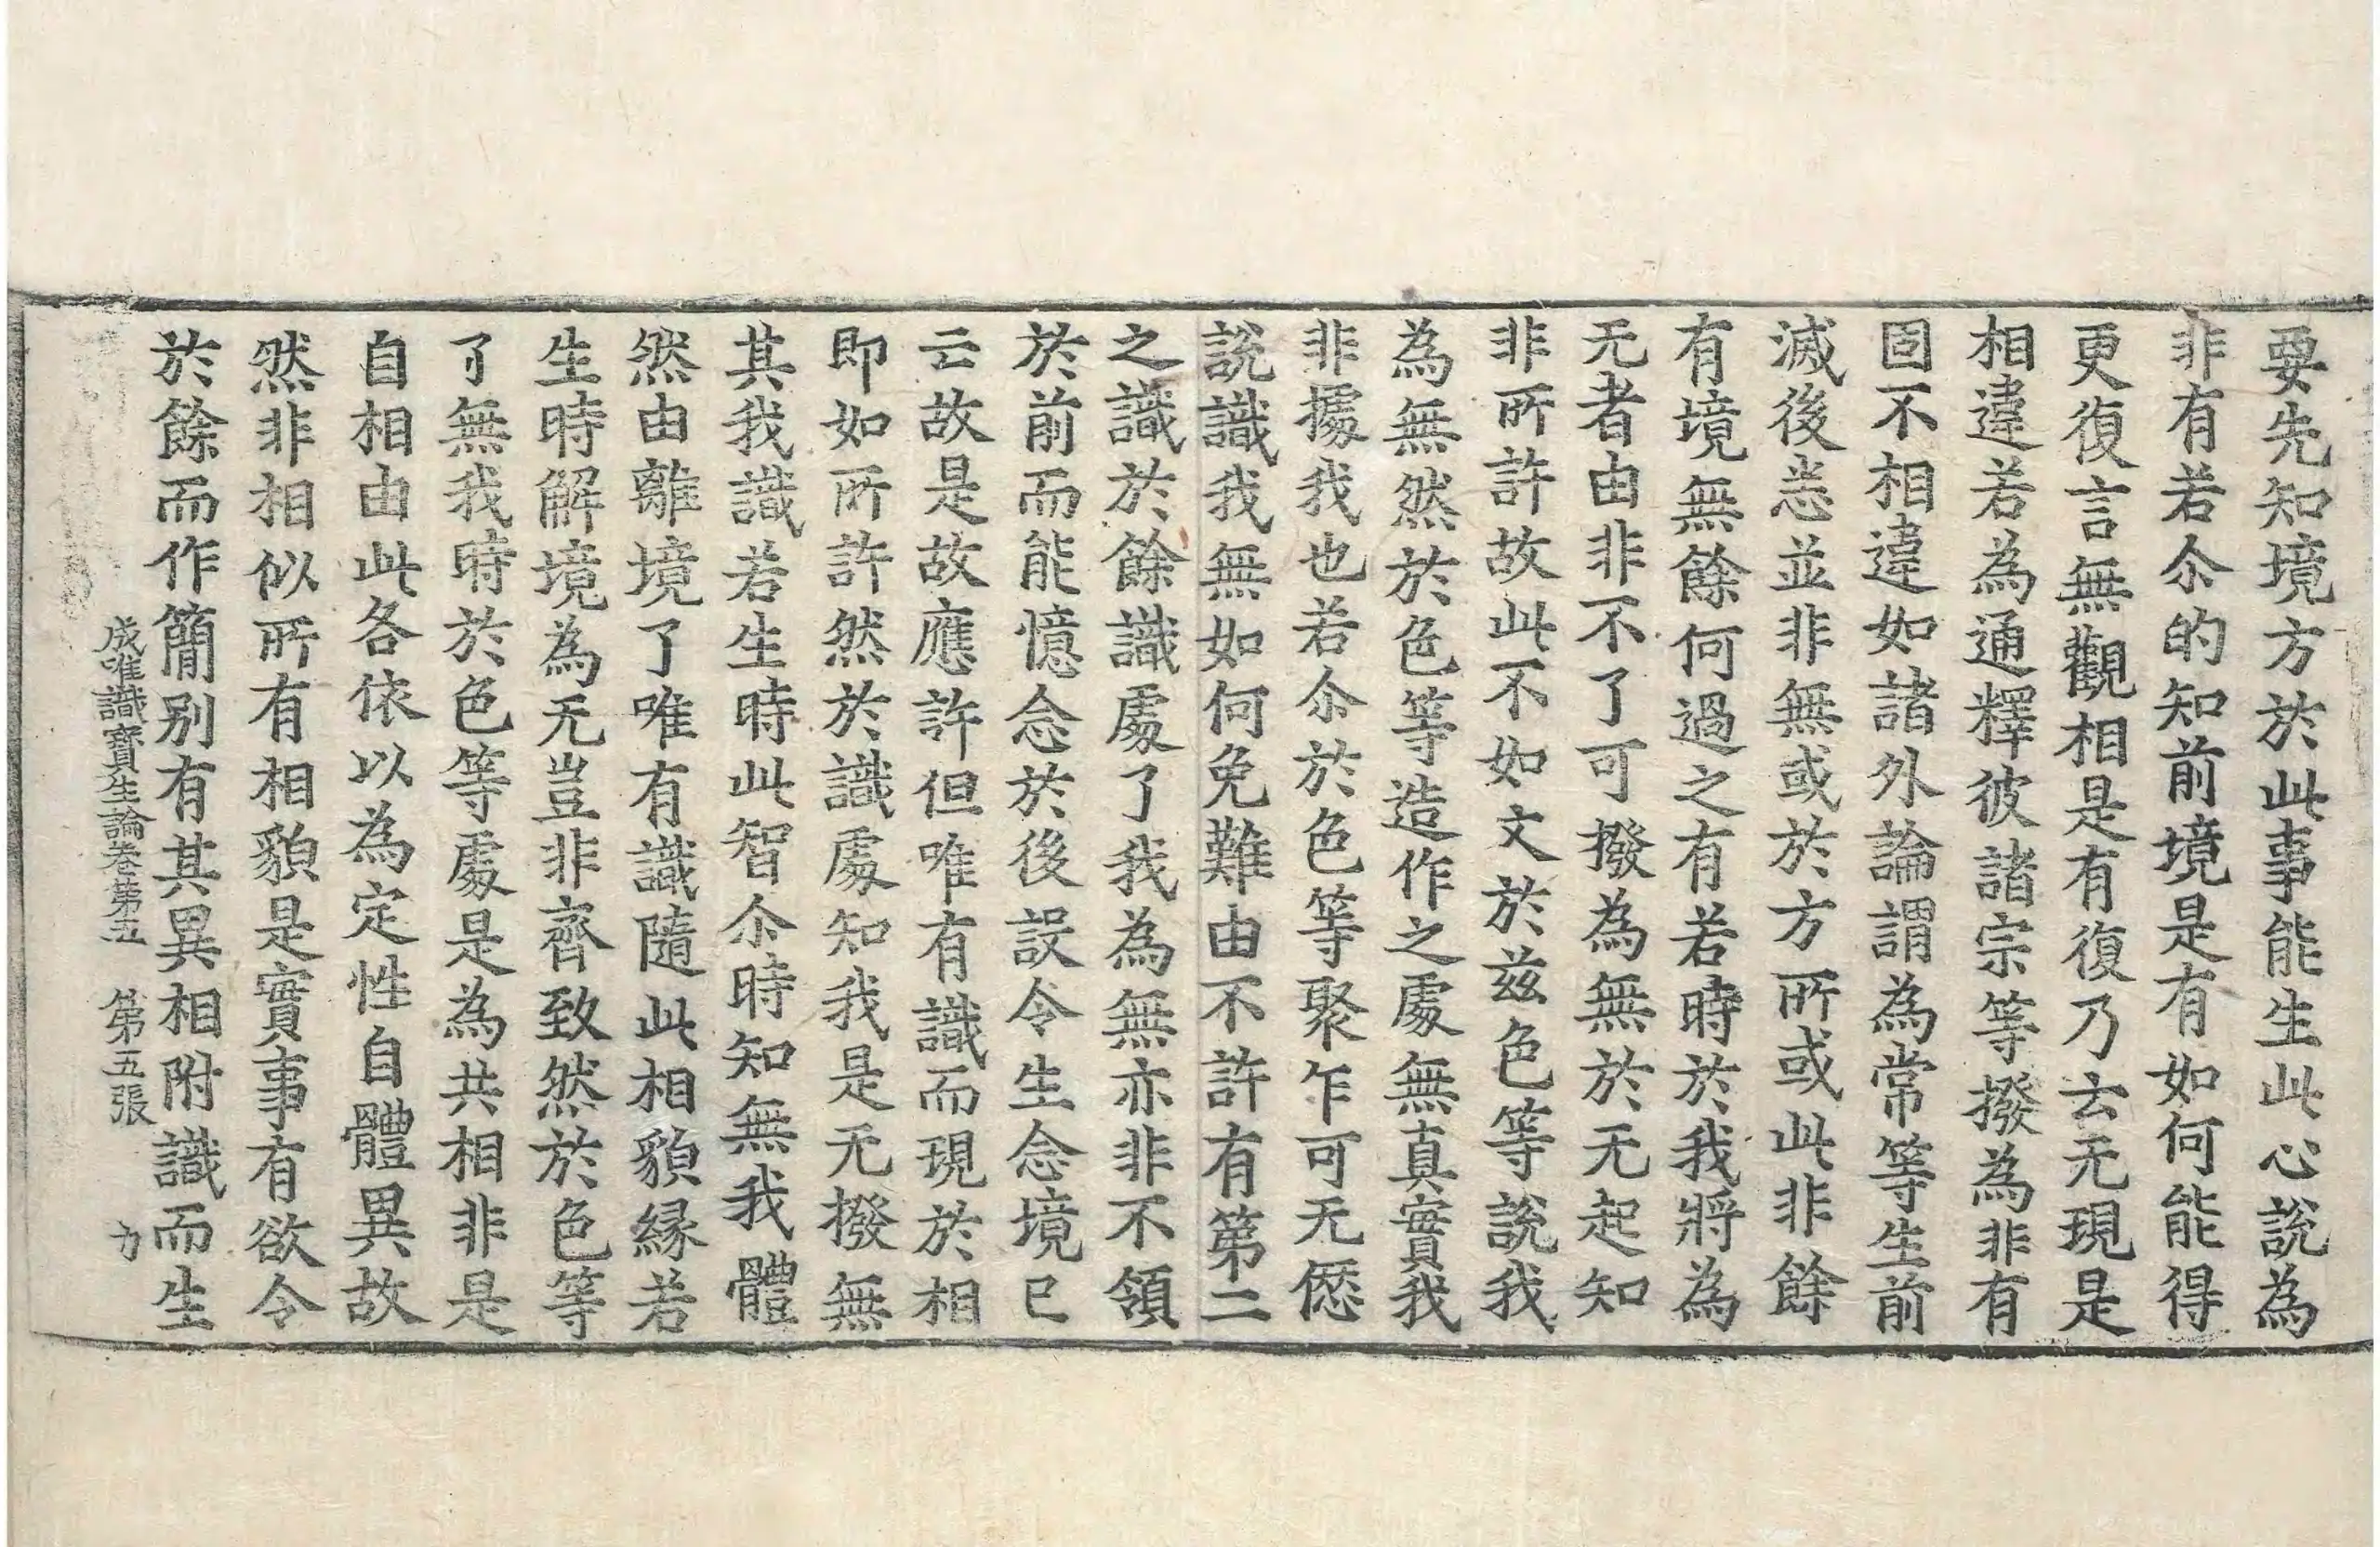 要先知境方於此事能生此心說為
非有若尒的知前境是有如何能得
更復言無觀相是有復乃云无現是
相違若為通釋彼諸宗等撥為非有
固不相違如諸外論謂為常等生前
滅後恙並非無或於方所或此非餘
有境無餘何過之有若時於我將為
无者由非不了可撥為無於无起知
非所許故此不如文於兹色等說我
為無然於色等造作之處無真實我
非據我也若尒於色等聚乍可无㥶
說識我無如何免難由不許有第二
之識於餘識處了我為無亦非不領
於前而能憶念於後設令生念境已
云故是故應許但唯有識而現於相
即如所許然於識處知我是无撥無
其我識若生時此智尒時知無我體
然由離境了唯有識隨此相貌緣若
生時解境為无豈非齊致然於色等
了無我時於色等處是為共相非是
自相由此各依以為定性自體異故
然非相似所有相貌是實事有欲令
於餘而作簡別有其異相附識而生
成唯識寶生論卷第五　第五張　力